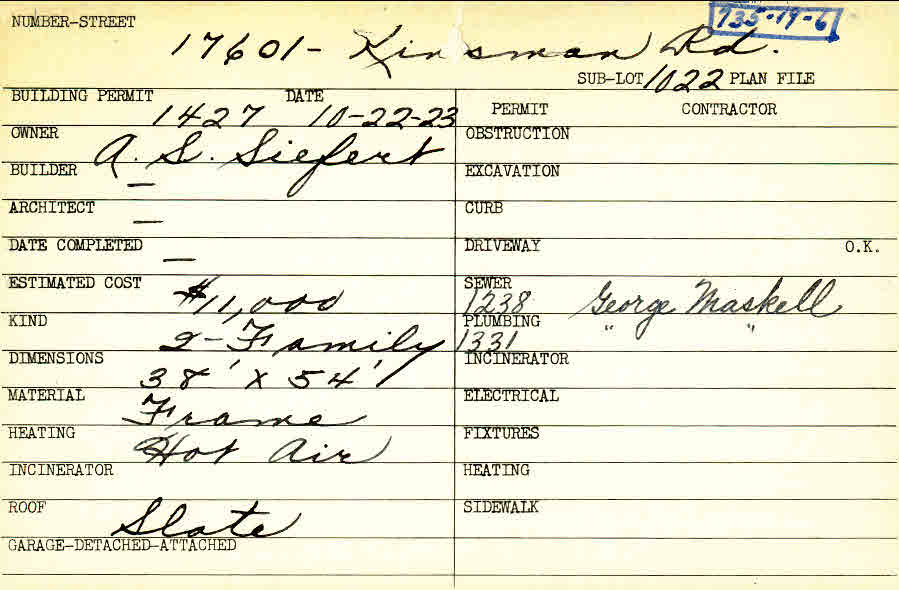 NUMBER-STREET 735-19-6
17601- Kinsman Rd.
SUB-LOT 1022 PLAN FILE
BUILDING PERMIT DATE
1427 10-22-23
PERMIT CONTRACTOR
OWNER A. S. Siefert
OBSTRUCTION
BUILDER —
EXCAVATION
ARCHITECT —
CURB
DATE COMPLETED —
DRIVEWAY O.K.
ESTIMATED COST $11,000
SEWER
1238 George Maskell
KIND 2-Family
PLUMBING " "
1331
DIMENSIONS 38' x 54'
INCINERATOR
MATERIAL Frame
ELECTRICAL
HEATING Hot Air
FIXTURES
INCINERATOR
HEATING
ROOF Slate
SIDEWALK
GARAGE-DETACHED-ATTACHED